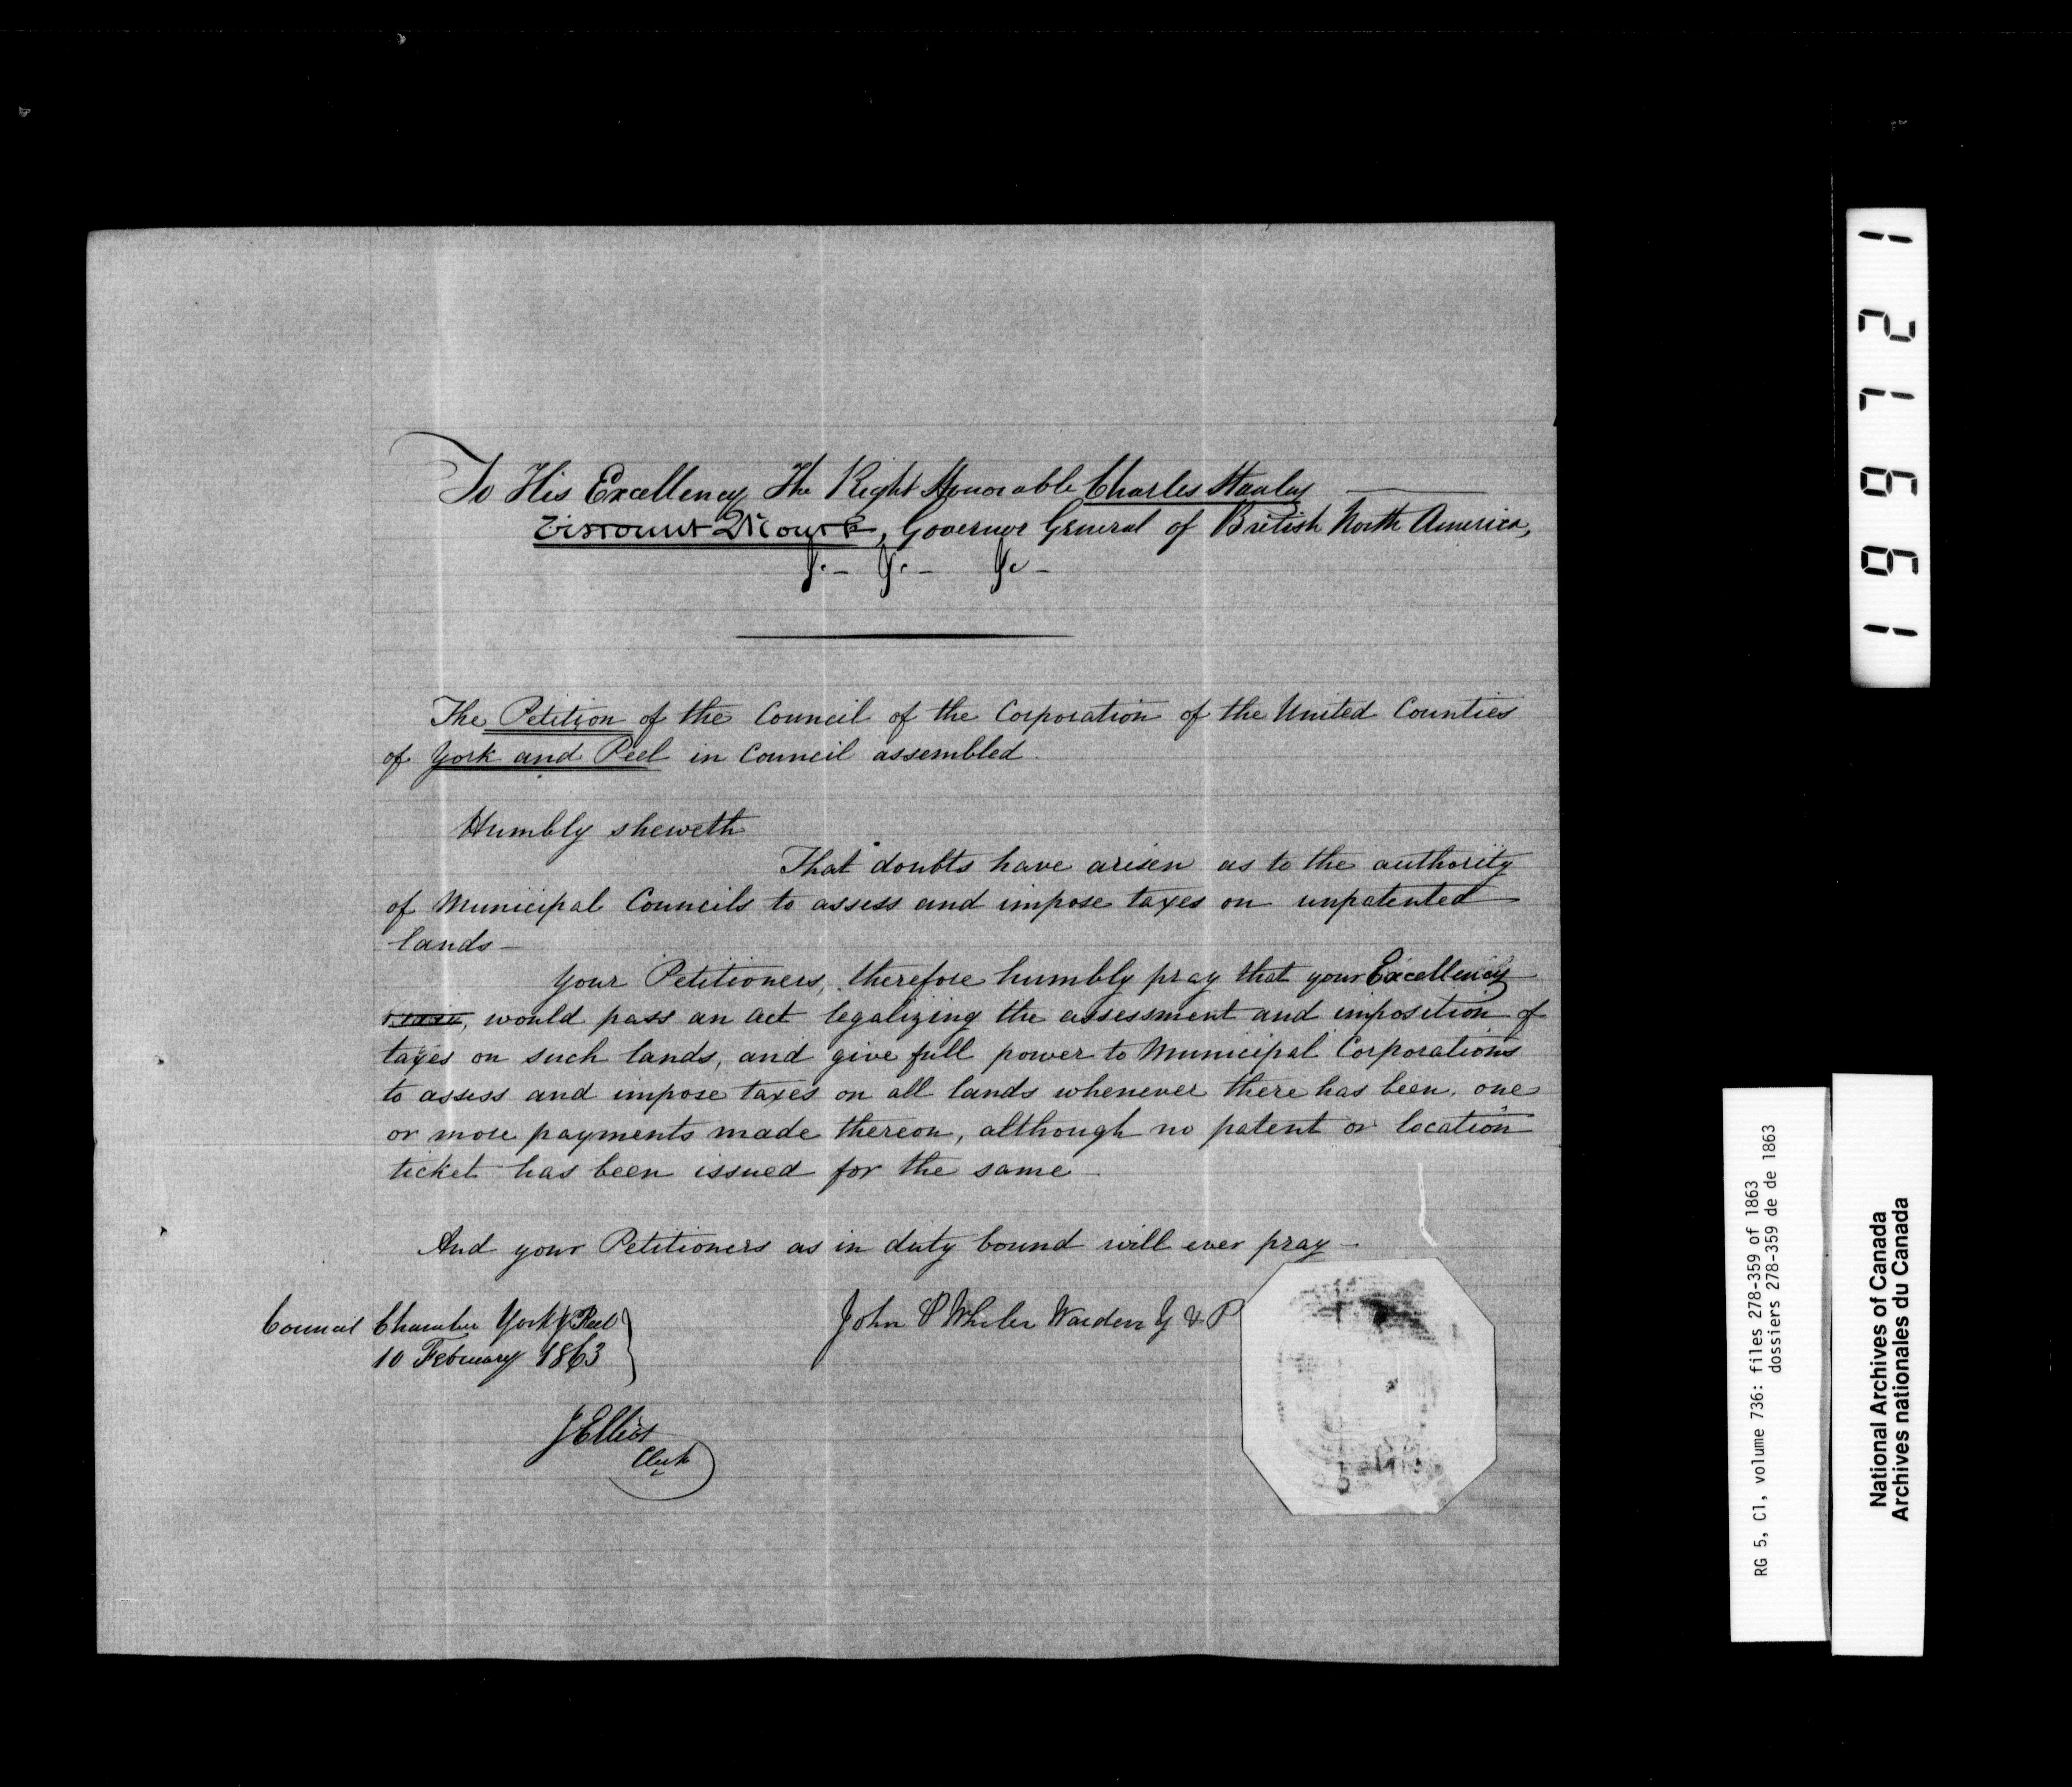 To His Excellency The Right Honorable Charles Stanley
Viscount Monck, Governor General of British North America,
&c.- &c.- &c-
The Petition of the Council of the Corporation of the United Counties
of York and Peel in Council assembled.
Humbly sheweth
That doubts have arisen as to the authority
of Municipal Councils to assess and impose taxes on unpatented
lands-
Your Petitioners, therefore humbly pray that your Excellency
would pass an act legalizing the assessment and imposition of
taxes on such lands, and give full power to Municipal Corporations
to assess and impose taxes on all lands whenever there has been, one
or more payments made thereon, although no patent or location
ticket has been issued for the same.
And your Petitioners as in duty bound will ever pray-
Council Chamber York & Peel
10 February 1863
John P Wheler Warden Y & P
J Elliot
Clerk
196721
RG 5, C1, volume 736: files 278-359 of 1863
dossiers 278-359 de de 1863
National Archives of Canada
Archives nationales du Canada